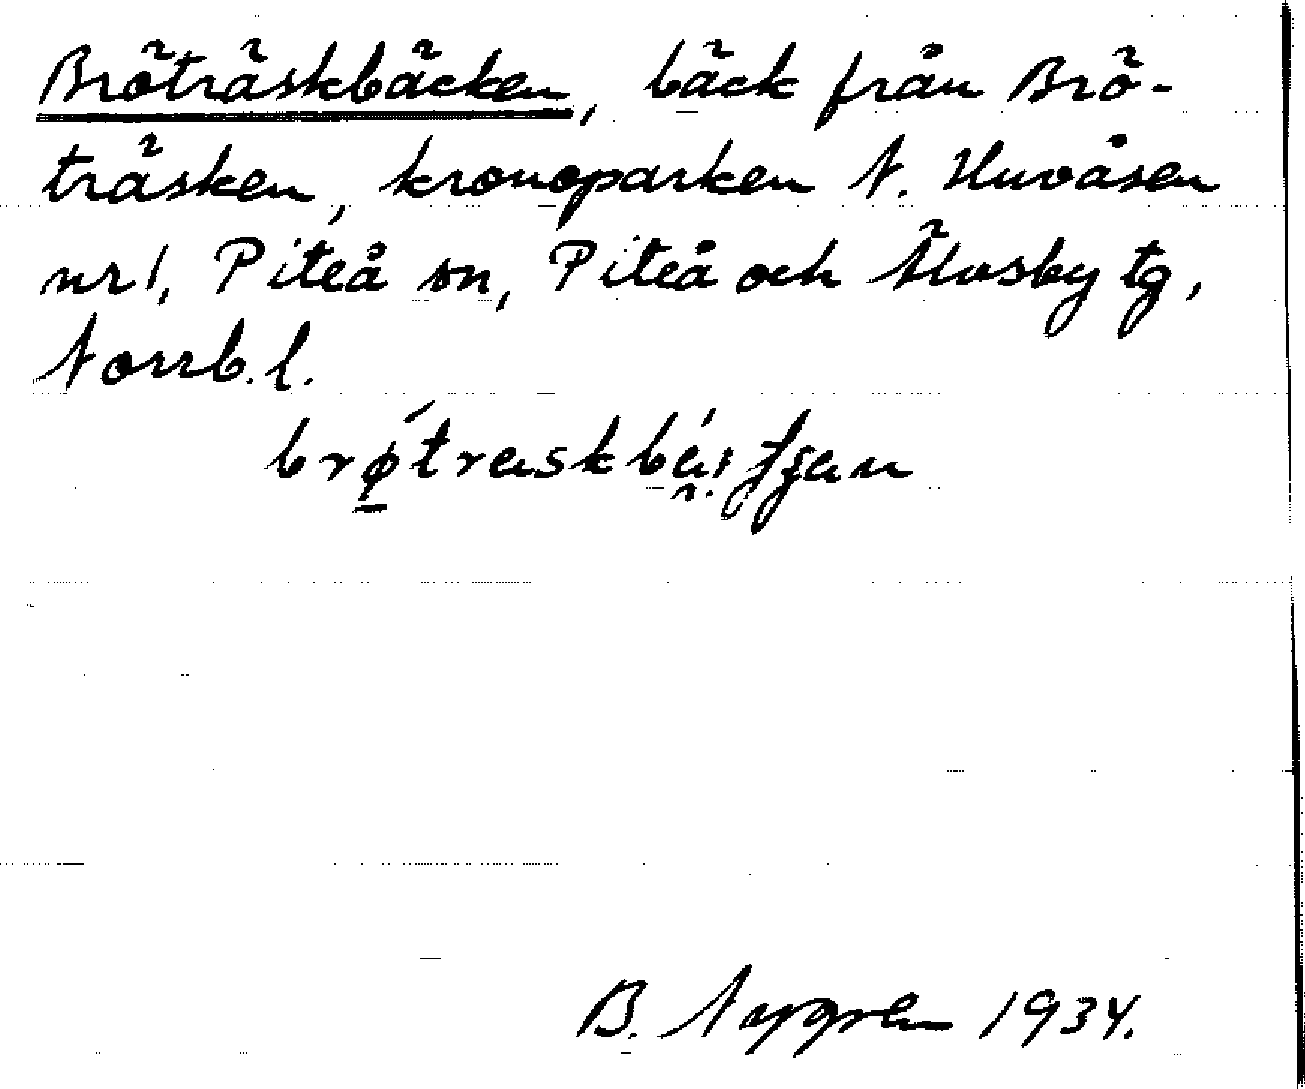 Bröträskbäcken, bäck från Brö-
träsken, kronoparken N. Huvåsen
nr 1, Piteå sn, Piteå och Älvsby tg,
Norrb. l.
B. Nygren 1934.